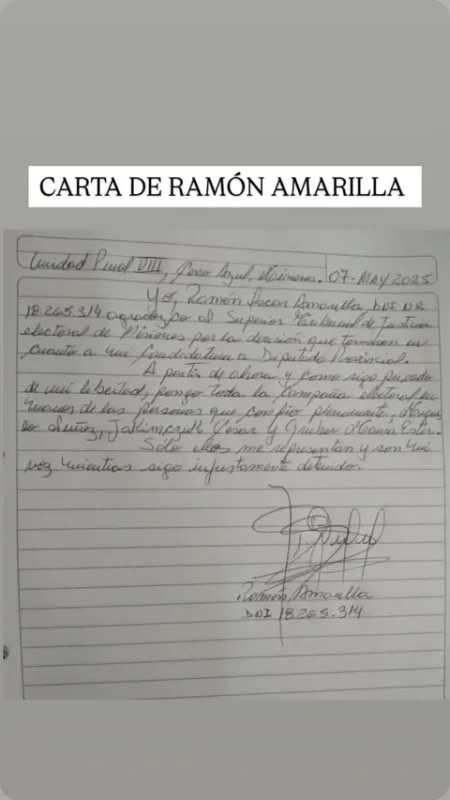 CARTA DE RAMÓN AMARILLA
Unidad Penal VIII, Cerro Azul, Misiones. 07-MAY 2025
Yo, Ramón Oscar Amarilla DNI NR
18.265.314 agradezco al Superior Tribunal de Justicia
electoral de Misiones por la decisión que tomaron en
cuanto a mi Candidatura a Diputado Provincial.
A partir de ahora y como sigo privado
de mi libertad, pongo toda la Campaña electoral en
manos de las personas que confío plenamente,
Núñez, César y Gruber Ester.
Sólo ellos me representan y son mi
voz mientras siga injustamente detenido.
Ramón Amarilla
DNI 18.265.314